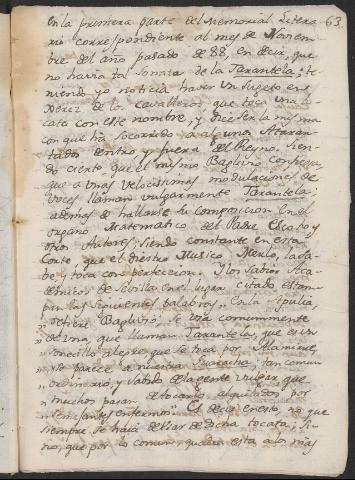 En la primera parte del Memorial Litera 63.
rio correspondiente al mes de Noviem
bre del año pasado de 88, en decir, que
no havia tal Sonata de la Tarantela; te
niendo yo noticia haver un Sugeto en
Xerez de los Cavalleros que toca una to
cata con este nombre, y dice ser la misma
con que ha socorrido a algunos Ataran
tados dentro y fuera del Reyno. Sien
do cierto, que el mismo Baglivio
que a unas velocissimas modulaciones de
voces llaman vulgarmente Tarantela;
ademas de hallarse su composicion en el
organo Matematico del Padre Escoto, y
otros Autores; siendo constante en esta
Corte que el diestro Musico, Merlo, la sa
be, y toca con perfeccion. Y los Sabios Aca
demicos de Sevilla en el lugar citado estam
pan las siguientes palabras, "En la Apulia,
" refiere Baglivio, se usa comunmente
" de una, que llaman Tarantela, que es un
" soncillo alegre que se toca por Alamirre,
" se parece a nuestra Guaracha, tan comun
" ordinario, y sabido de la gente vulgar que
" muchos pasan de tocarlo alquilados por
" semejantes enfermos". Es decir en esto, no que
siempre se haia de usar de dicha tocata, si
no, que por lo comun, quadra esta a los mas